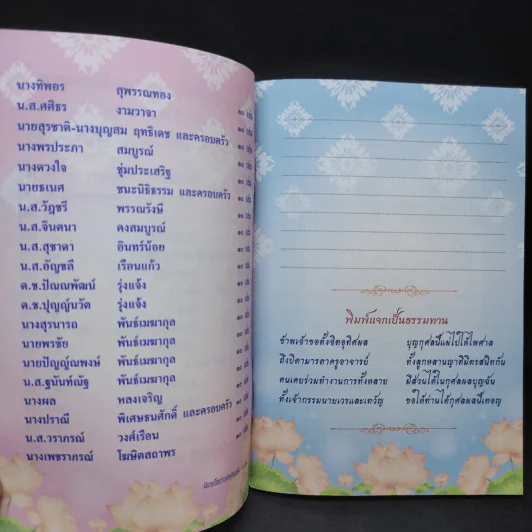 นางทิพอร สุพรรณทอง ๑๐ เล่ม
น.ส.ศศิธร งามวาจา ๑๐ เล่ม
นายสุรชาติ-นางบุญสม ฤทธิเดช และครอบครัว ๑๐ เล่ม
นางพรประภา สมบูรณ์ ๑๐ เล่ม
นางดวงใจ ชุ่มประเสริฐ ๑๐ เล่ม
นายธเนศ ชนะนิธิธรรม และครอบครัว ๑๐ เล่ม
น.ส.วัฎชรี พรรณรังษี ๑๐ เล่ม
น.ส.จินตนา คงสมบูรณ์ ๑๐ เล่ม
น.ส.สุชาดา อินทร์น้อย ๑๐ เล่ม
น.ส.อัญชลี เรือนแก้ว ๑๐ เล่ม
ด.ช.ปัณณพัฒน์ รุ่งแจ้ง ๑๐ เล่ม
ด.ช.ปุญญ์นวัต รุ่งแจ้ง ๑๐ เล่ม
นางสุรนารถ พันธ์เมฆากุล ๑๐ เล่ม
นายพรชัย พันธ์เมฆากุล ๑๐ เล่ม
นายปัญญ์ณพงษ์ พันธ์เมฆากุล ๑๐ เล่ม
น.ส.ฐนันท์ณัฐ พันธ์เมฆากุล ๑๐ เล่ม
นางผล หลงเจริญ ๑๐ เล่ม
นางปราณี พิเศษธนศักดิ์ และครอบครัว ๑๐ เล่ม
น.ส.วราภรณ์ วงศ์เรือน ๑๐ เล่ม
นางเพชราภรณ์ โฆษิตสถาพร ๑๐ เล่ม
พิมพ์แจกเป็นธรรมทาน
ข้าพเจ้าขอตั้งจิตอุทิศผล บุญกุศลนี้แผ่ไปให้ไพศาล
ถึงบิดามารดาครูอาจารย์ ทั้งลูกหลานญาติมิตรสนิทกัน
คนเคยร่วมทำงานการทั้งหลาย มีส่วนได้ในกุศลผลบุญฉัน
ทั้งเจ้ากรรมนายเวรและเทวัญ ขอให้ท่านได้กุศลผลนี้เทอญ